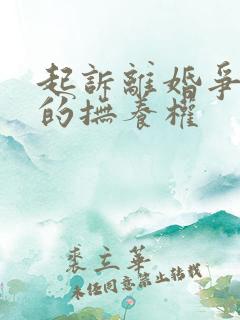 起訴離婚爭
的撫養權
裘立華
未经同意禁止转载